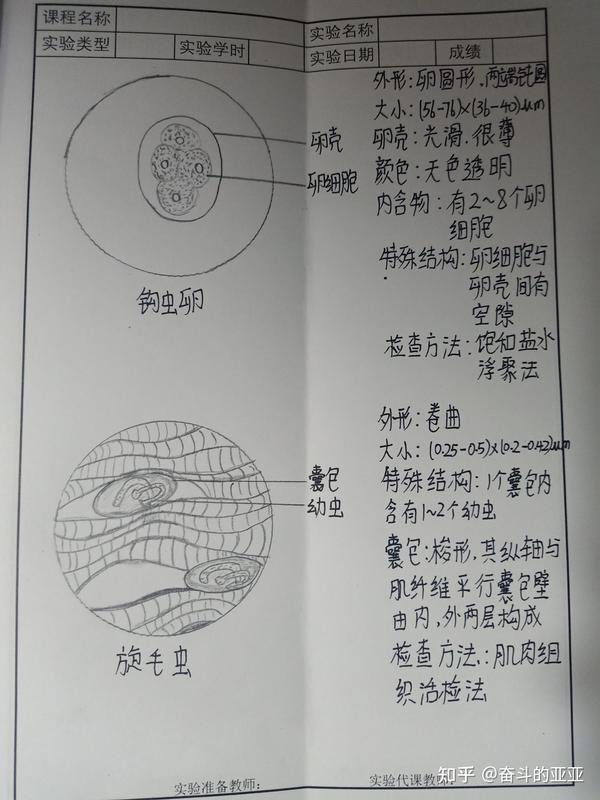 课程名称
实验名称
实验类型
实验学时
实验日期
成绩
卵壳
卵细胞
钩虫卵
外形:卵圆形,两端钝圆
大小:(56-76)×(36-40)um
卵壳:光滑,很薄
颜色:无色透明
内含物:有2~8个卵
细胞
特殊结构:卵细胞与
卵壳间有
空隙
检查方法:饱和盐水
浮聚法
囊包
幼虫
旋毛虫
外形:卷曲
大小:(0.25-0.5)×(0.2-0.42)um
特殊结构:1个囊包内
含有1~2个幼虫
囊包:梭形,其纵轴与
肌纤维平行囊包壁
由内,外两层构成
检查方法:肌肉组
织活检法
实验准备教师:
实验代课教师:
知乎 @奋斗的亚亚